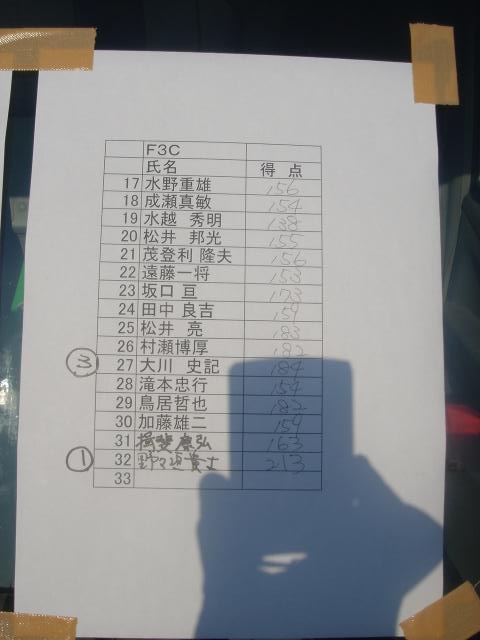 F3C
氏名 得点
17 水野重雄 156
18 成瀬真敏 154
19 水越 秀明 138
20 松井 邦光 155
21 茂登利 隆夫 156
22 遠藤一将 153
23 坂口 亘 173
24 田中 良吉 159
25 松井 亮 183
26 村瀬博厚 182
③ 27 大川 史記 184
28 滝本忠行 154
29 鳥居哲也 182
30 加藤雄二 159
31 揖斐康弘 163
① 32 213
33